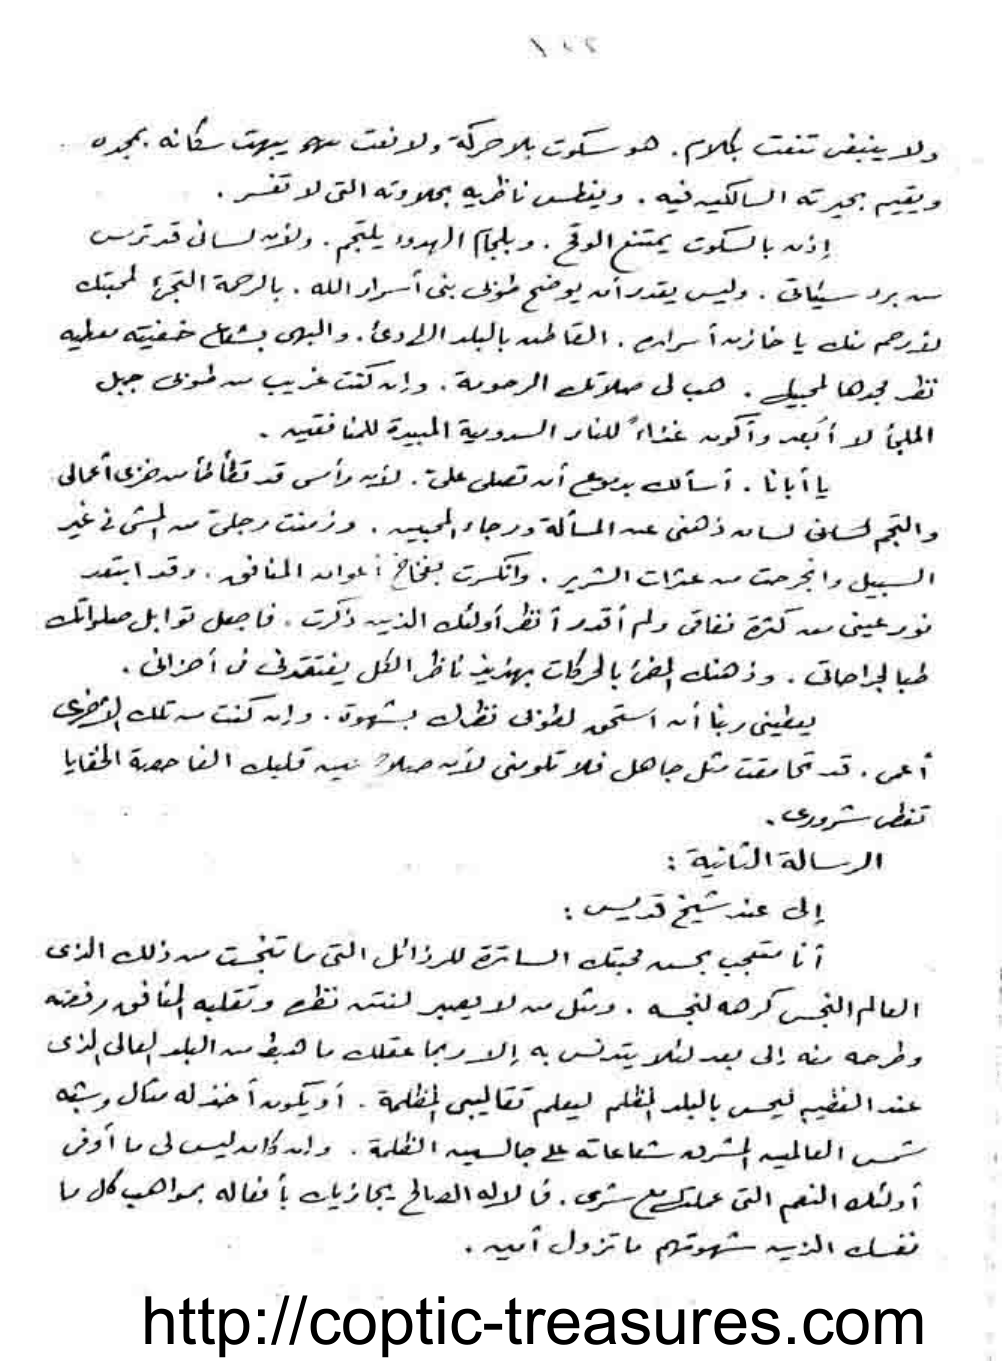 ولا ينبغى تنعت بكلام. هو سكوت بلا حركة ولا نعت يبهت سكانه بمجده
ويقيم بحيرته السالكين فيه. ويغطس ناظريه بحلاوته التى لا تفسر.
إذن بالسكوت يمتنع الوقح. وبلجام الهدوء يلتجم. ولأن لسانى قد ترس
من برد سيئاتى. وليس يقدر أن يوضح طوبى بنى أسرار الله. بالرحمة التجئ لمحبتك
منك يا خازن أسراره. القاطن بالبلد الهادئ. والبهى بشعاع خفيته معطيه
نظر مجدها لمحبيك. هب لى صلاتك المرحومة. وإن كنت غريب من طوبى جبل
الملجأ لا أبعد وأكون غذاءً للنار السدومية المبيدة للمنافقين.
يا أبانا. أسألك بدموع أن تصلى علىّ. لأن رأسى قد تطأطأ من خزى أعمالى
والتجم لسانى لسان ذهنى عن المسألة ورجاء المحبين. وزمنت رجلىّ من المشى فى غير
السبيل وانجرحت من عثرات الشرير. وانكسرت بفخاخ أعوان المنافق. وقد ابتعد
نور عينى من كثرة نفاقى ولم أقدر أنظر أولئك الذين ذكرت. فاجعل توابل صلواتك
طبا لجراحاتى. وذهنك المضئ بالحركات بهذيذ ناظر الكل يفتقدنى فى أحزانى.
يعطينى ربنا أن أستحق لطوبى نظرك بشهوة. وإن كنت من تلك الأخرى
أعمى. قد تحامقت مثل جاهل فلا تلومنى لأن صلاة عين قلبك الفاحصة الخفايا
تغطى شرورى.
الرسالة الثانية :
إلى عند شيخ قديس :
أنا متعجب بحسن محبتك الساترة للرذائل التى ما تنجست من ذلك الذى
العالم النجس كرهه لنجسه. ومثل من لا يصبر لنتن نظره وتقلبه المنافق رفضه
وطرحه منه إلى بعد لئلا يتدنس به إلا ربما عقلك ما هبط من البلد العالى الذى
عند العظيم ليحس بالبلد المظلم ليعلم تقاليبى المظلمة. أو يكون أخذ له مثال وشبه
شمس العالمين المشرق شعاعاته على جالسين الظلمة. وإن كان ليس لى ما أوفى
أولئك النعم التى عملتك مع شرى. فالإله الصالح يجازيك بأفعاله بمواهب كل ما
نفسك الذين شهوتهم ما تزول أمين.
http://coptic-treasures.com